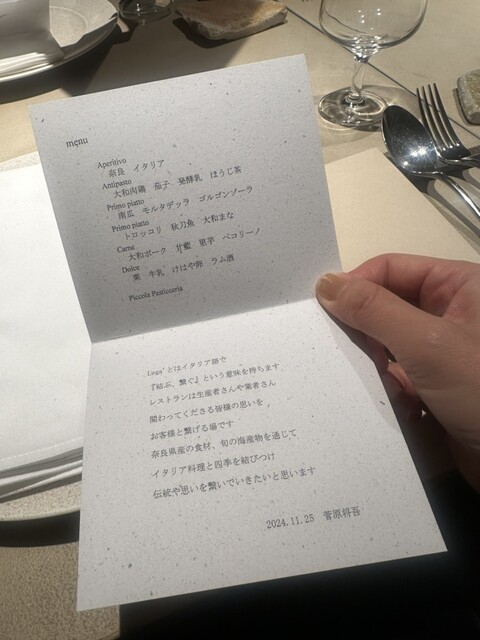 menu
Aperitivo
奈良　イタリア
Antipasto
大和肉鶏　茄子　発酵乳　ほうじ茶
Primo piatto
南瓜　モルタデッラ　ゴルゴンゾーラ
Primo piatto
トロッコリ　秋刀魚　大和まな
Carne
大和ポーク　甘藍　里芋　ペコリーノ
Dolce
栗　牛乳　けはや卵　ラム酒
Piccola Pasticceria
とはイタリア語で
『結ぶ、繋ぐ』という意味を持ちます
レストランは生産者さんや業者さん
関わってくださる皆様の思いを
お客様と繋げる場です
奈良県産の食材、旬の海産物を通じて
イタリア料理と四季を結びつけ
伝統や思いを繋いでいきたいと思います
2024.11.25　菅原将吾